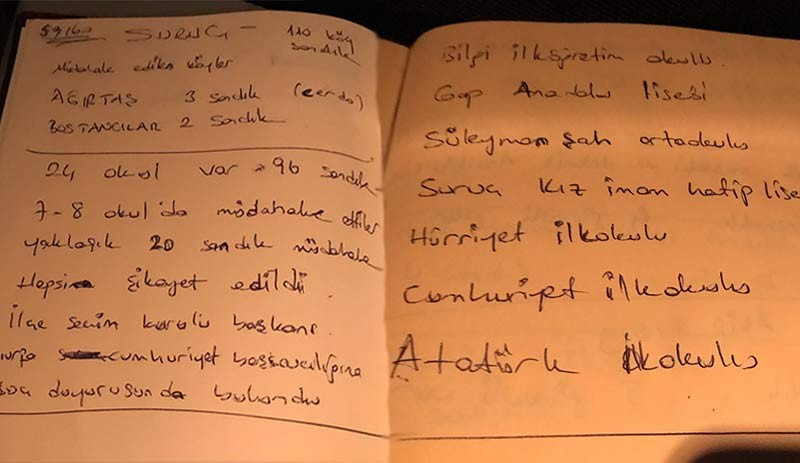 59160 SURUÇ - 110 köy
sandık
Müdahale edilen köyler
AĞIRTAŞ 3 sandık
BOSTANCILAR 2 sandık
24 okul var 96 sandık
7-8 okul'da müdahale ettiler
yaklaşık 20 sandık müdahale
Hepsine şikayet edildi
İlçe seçim kurulu başkanı
cumhuriyet başsavcılığına
duyurusunda bulundu
Bilgi ilköğretim okulu.
Gap Anadolu lisesi
Süleyman şah ortaokulu
Suruç Kız imam hatip lise
Hürriyet ilkokulu
Cumhuriyet ilkokulu
Atatürk ilkokulu